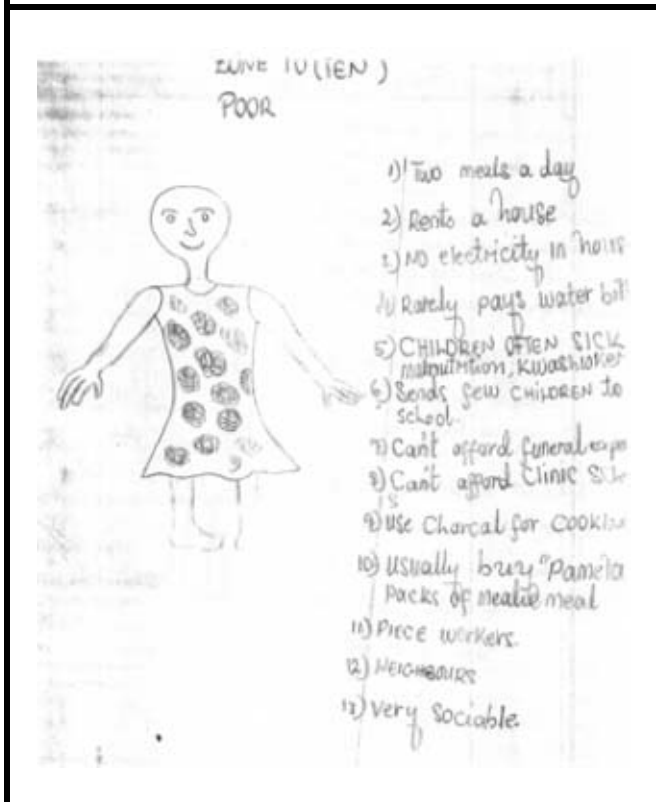 ZONE 10 (TEN)
POOR
1) Two meals a day
2) Rents a house
3) NO electricity in hous
4) Rarely pays water bil
5) CHILDREN OFTEN SICK
malnutrition, Kwashioker
6) Sends few CHILDREN to
school.
7) Can't afford funeral expe
8) Can't afford Clinic
9) Use Charcal for COOKIN
10) Usually buy "Pamela
Packs of mealie meal
11) PIECE workers.
12) NEIGHBOURS
13) Very Sociable